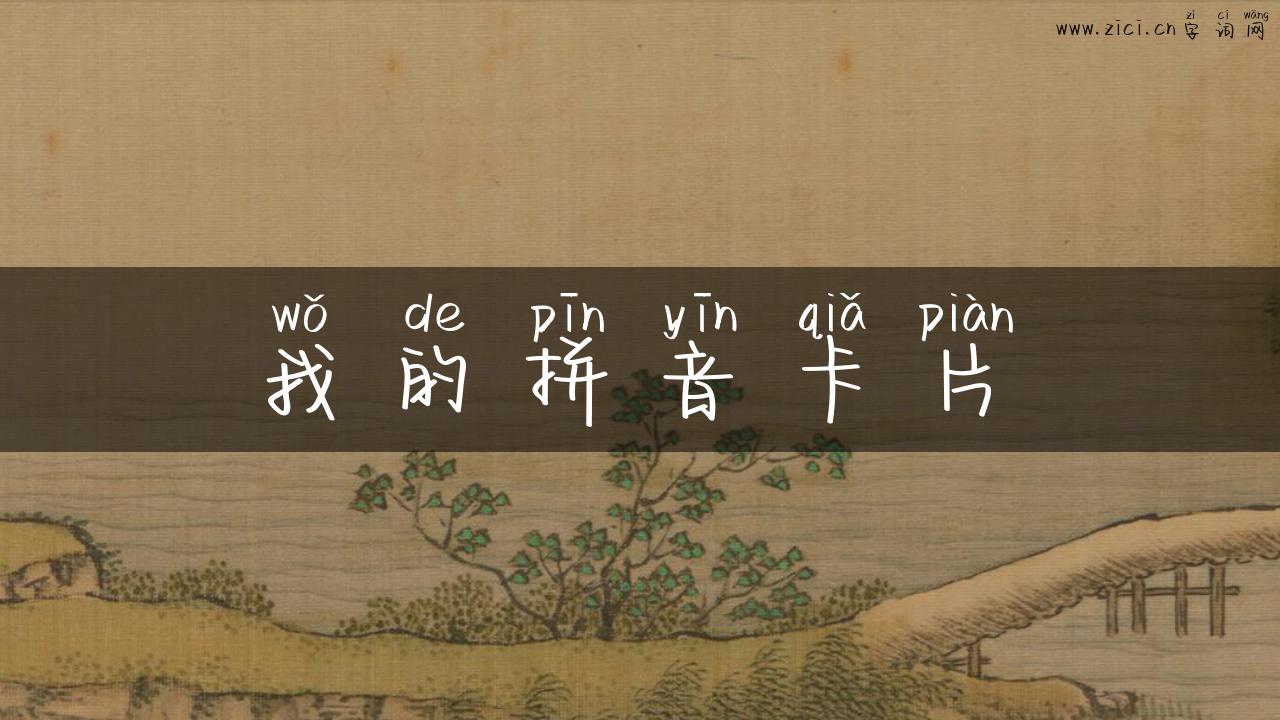 zì cí wǎng
www.zici.cn 字词网
wǒ de pīn yīn qiǎ piàn
我的拼音卡片